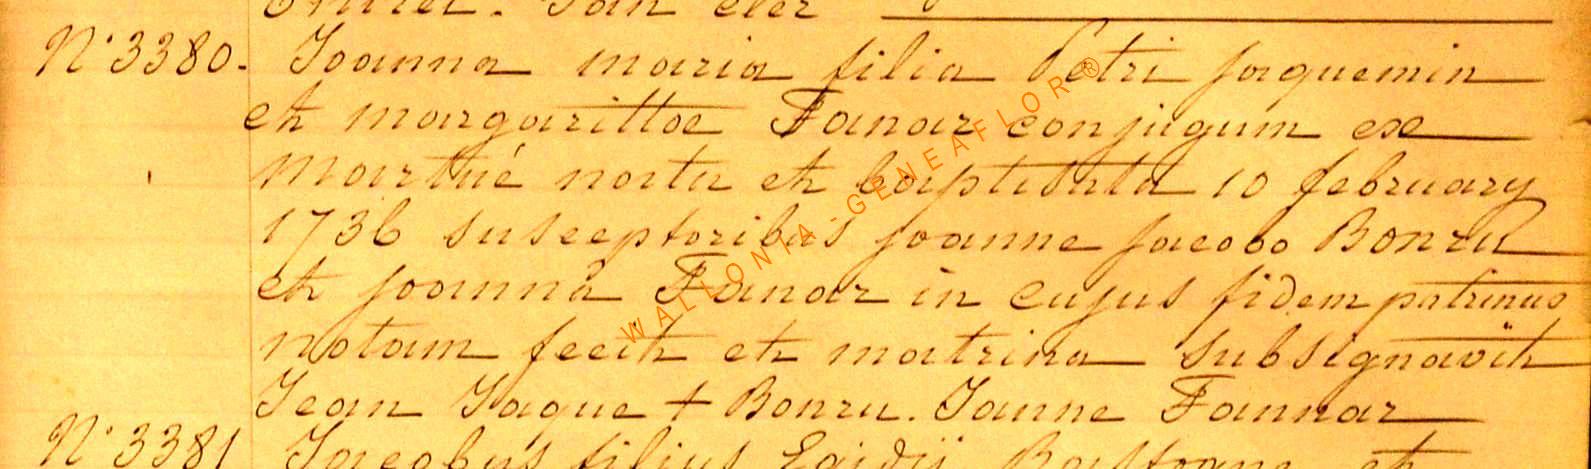 N° 3380. Joanna maria filia Petri jaquemin
et margarittae Fanar conjugum ex
Marthué nata et baptizata 10 february
1736 susceptoribus joanne jacobo Bonru
et joanna Fanar in cujus fidem patrinus
notam fecit et matrina subsignavit
Jean Jaque + Bonru. Janne Fannar
N° 3381 Jacobus filius Egidij Bastogne et
WALLONIA-GENEAFLOR®